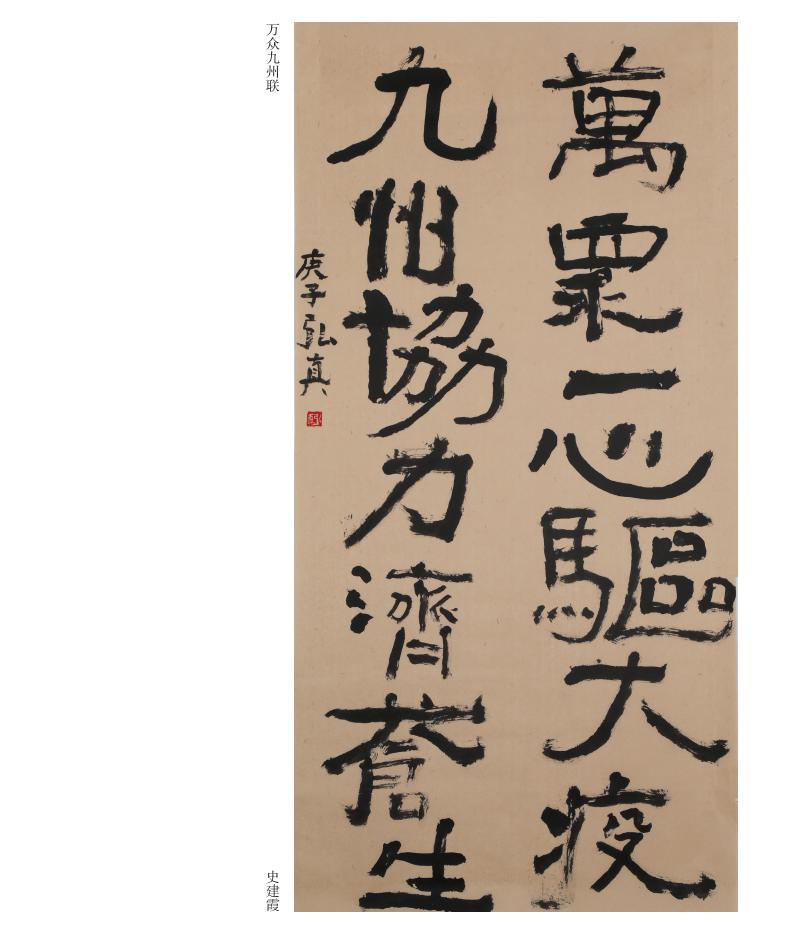 萬眾一心驅大疫
九州協力濟蒼生
庚子弘真
万众九州联
史建霞